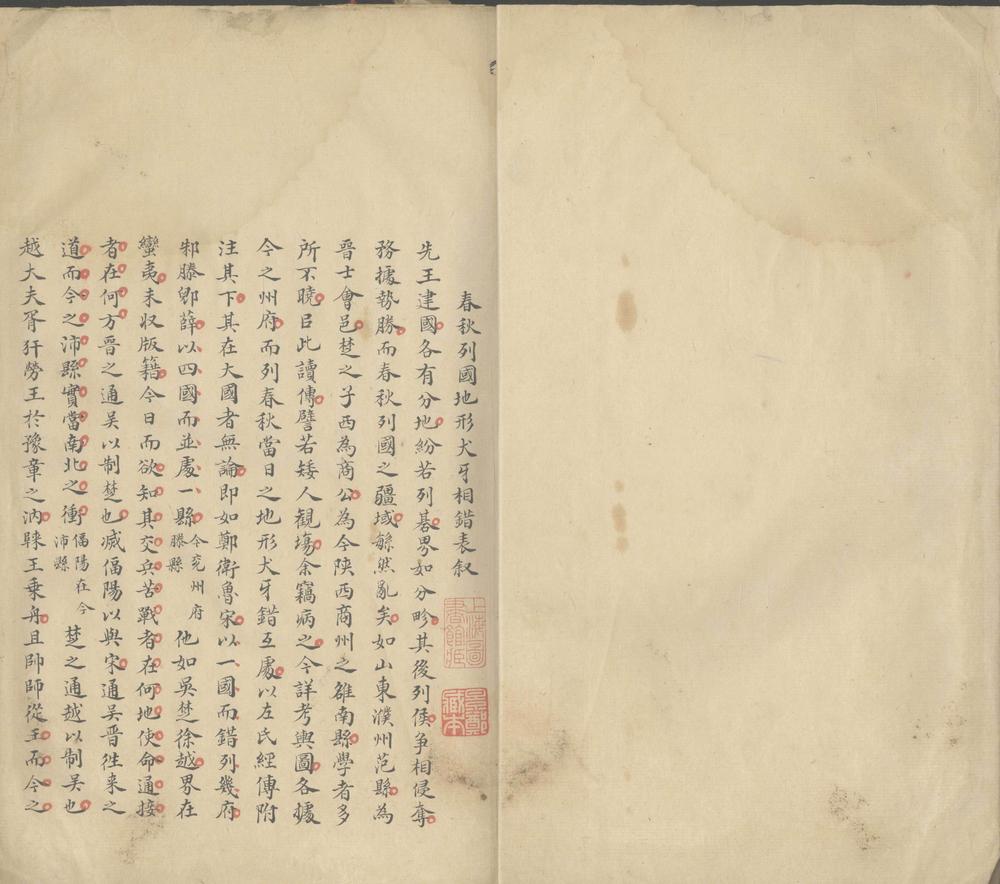 春秋列國地形犬牙相錯表叙
先王建國各有分地紛若列碁界如分畛其後列侯争相侵奪
務據勢勝而春秋列國之疆域緐然亂矣如山東濮州范縣為
晉士會邑楚之子西為商公為今陕西商州之雒南縣學者多
所不曉㠯此讀傳譬若矮人觀塲余竊病之今詳考輿圖各據
今之州府而列春秋當日之地形犬牙錯互處以左氏經傳附
注其下其在大國者無論即如鄭衛魯宋以一國而錯列幾府
邾滕郳薛以四國而並處一縣今兖州府滕縣他如吳楚徐越界在
蠻夷未収版籍今日而欲知其交兵苦戰者在何地使命通接
者在何方晉之通吳以制楚也滅偪陽以與宋通吳晉徃来之
道而今之沛縣實當南北之衝偪陽在今沛縣楚之通越以制吳也
越大夫胥犴勞王於豫章之汭王乗舟且帥師從王而今之
上海圖書館藏